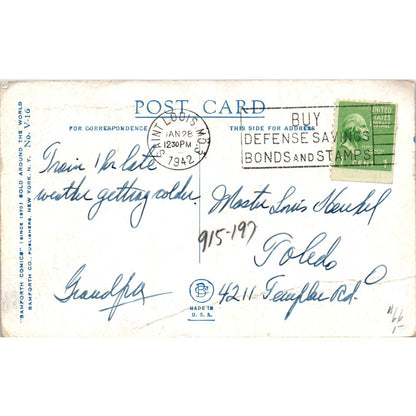 POST CARD
FOR CORRESPONDENCE
THIS SIDE FOR ADDRESS
"BAMFORTH COMICS" (SINCE 1870) SOLD AROUND THE WORLD
BAMFORTH CO., PUBLISHERS, NEW YORK, N.Y. No. V-16
SAINT LOUIS, MO.
JAN 28
1230 PM
1942
BUY
DEFENSE SAVINGS
BONDS AND STAMPS
UNITED
STATES
POSTAGE
1¢
Train 1 hr late
weather getting colder.
Grandpa
915-197
Master Louis Henkel
Toledo O
4211 Templar Rd.
MADE IN
U.S.A.